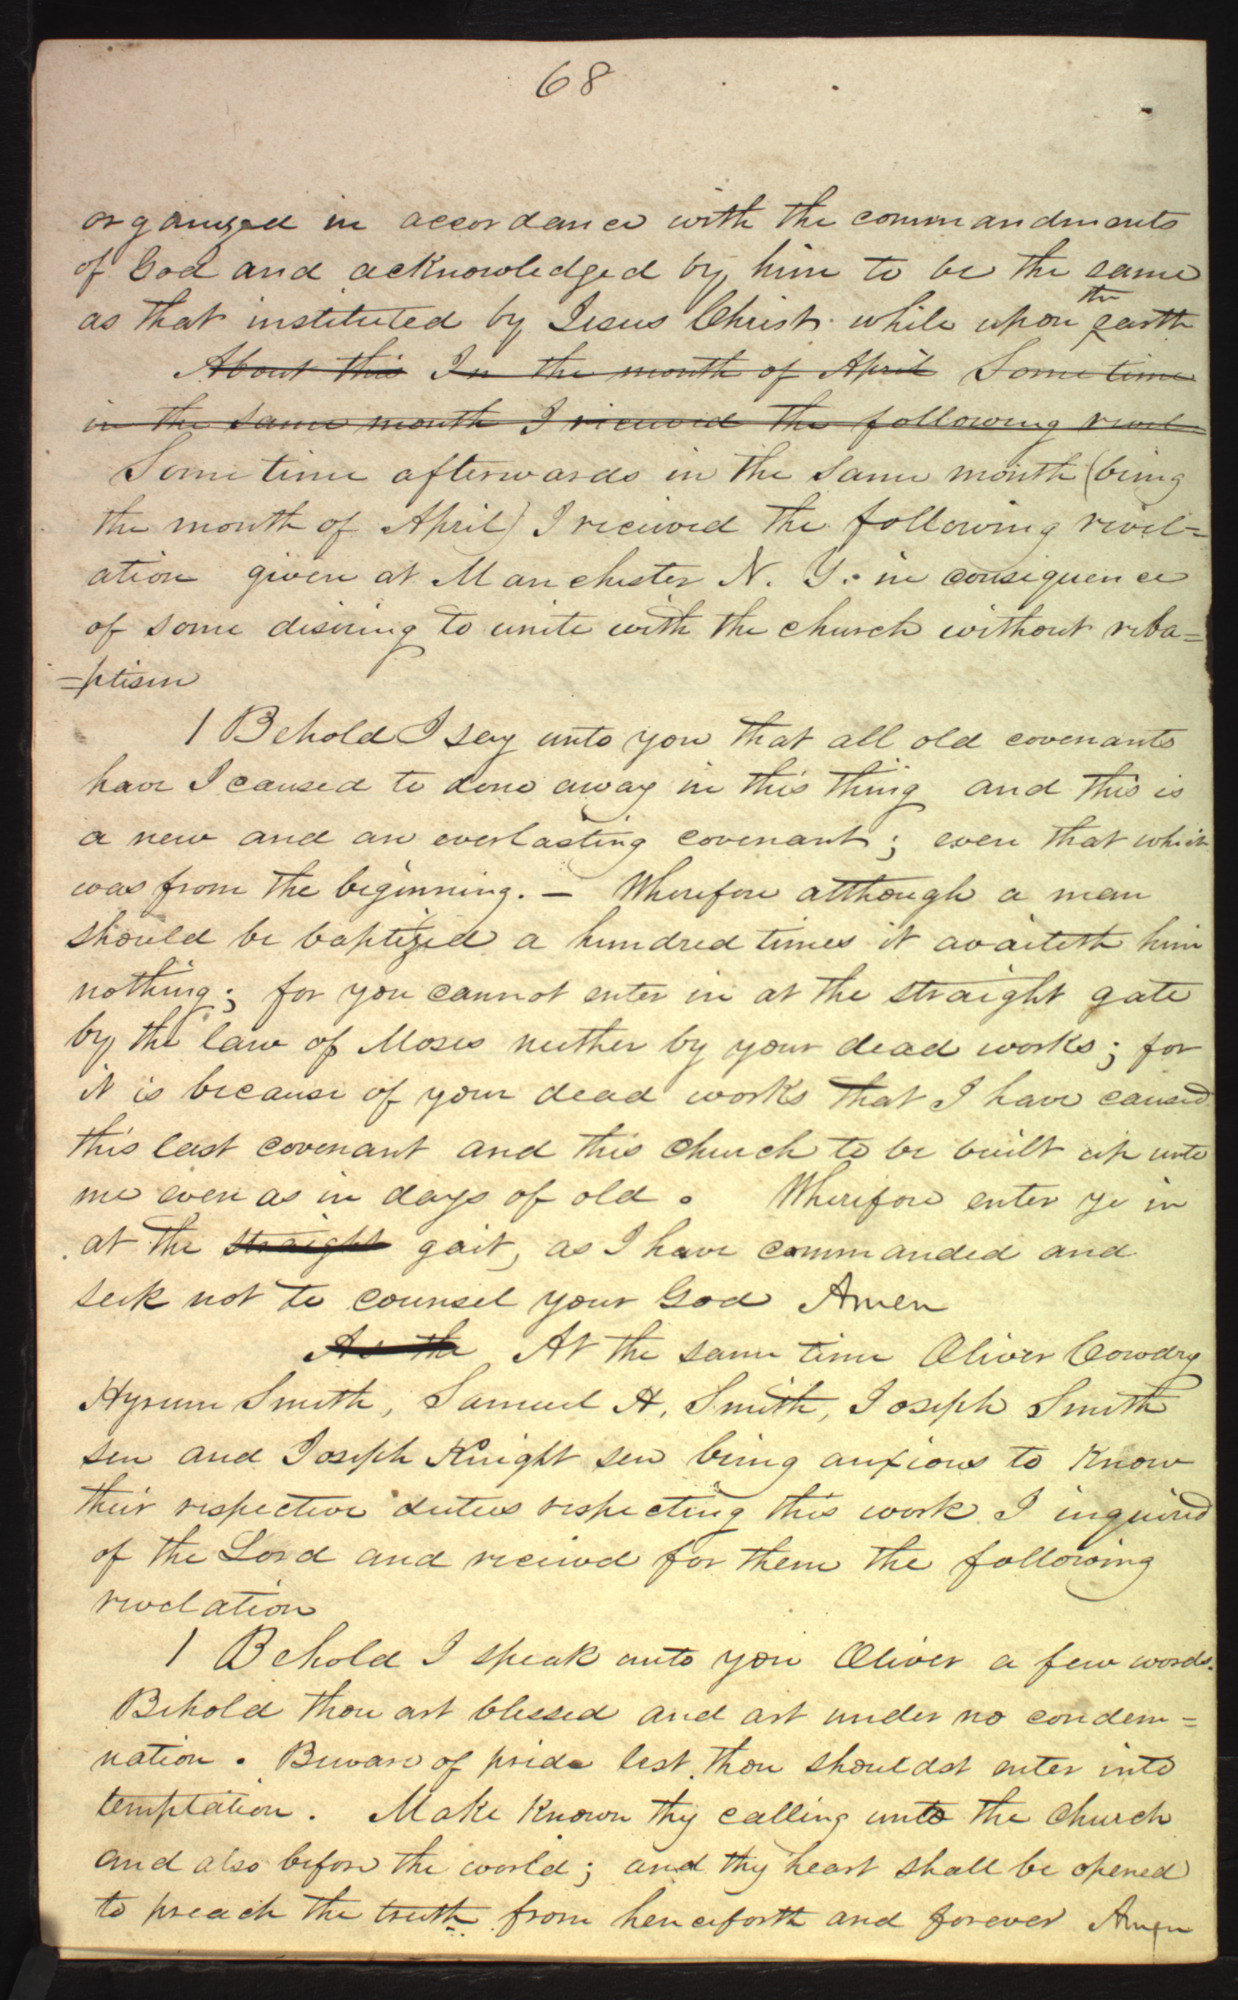 68
organized in accordance with the commandments
of God and acknowledged by him to be the same
as that instituted by Jesus Christ while upon the earth
About this In the month of April Some time
in the same month I received the following revel=
Some time afterwards in the same month (being
the month of April) I received the following revel=
ation given at Manchester N. Y. in consequence
of some desiring to unite with the church without reba=
=ptism
1 Behold I say unto you that all old covenants
have I caused to done away in this thing and this is
a new and an everlasting covenant; even that which
was from the beginning. — Wherefore although a man
should be baptized a hundred times it availeth him
nothing; for you cannot enter in at the straight gate
by the law of Moses neither by your dead works; for
it is because of your dead works that I have caused
this last covenant and this church to be built up unto
me even as in days of old. Wherefore enter ye in
at the straight gait, as I have commanded and
seek not to counsel your God Amen
As the At the same time Oliver Cowdry
Hyrum Smith, Samuel H. Smith, Joseph Smith
sen and Joseph Knight sen being anxious to know
their respective duties respecting this work I inquired
of the Lord and received for them the following
revelation
1 Behold I speak unto you Oliver a few words.
Behold thou art blessed and art under no condem=
nation. Beware of pride lest thou shouldst enter into
temptation. Make known thy calling unto the church
and also before the world; and thy heart shall be opened
to preach the truth from henceforth and forever Amen